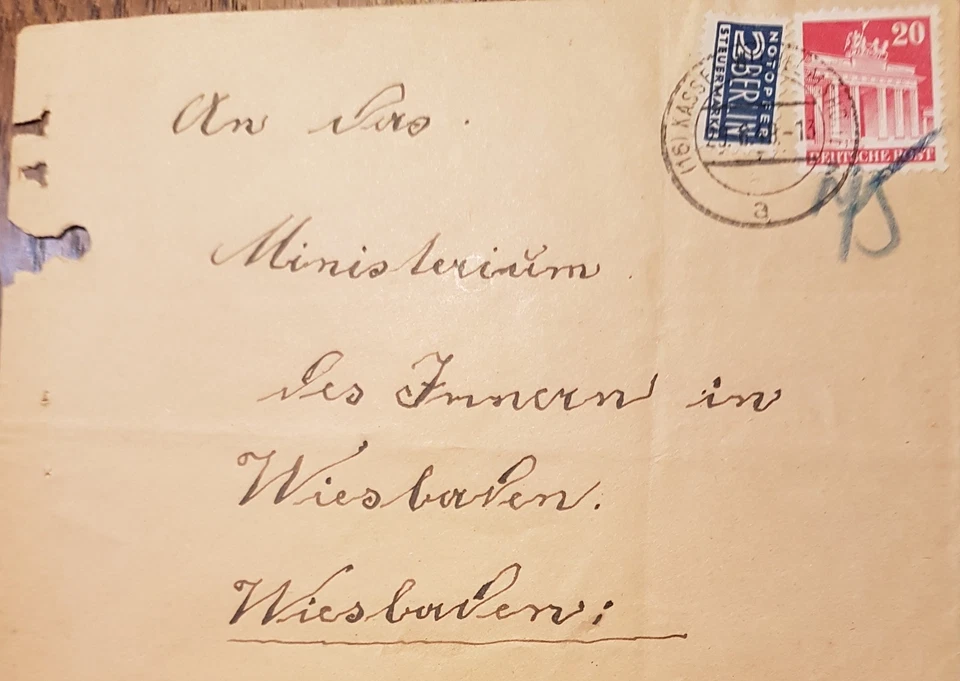 An das.
Ministerium.
des Innern in
Wiesbaden.
Wiesbaden:
NOTOPFER
2 BERLIN
STEUERMARKE
20
DEUTSCHE POST
(16) KASSEL
a